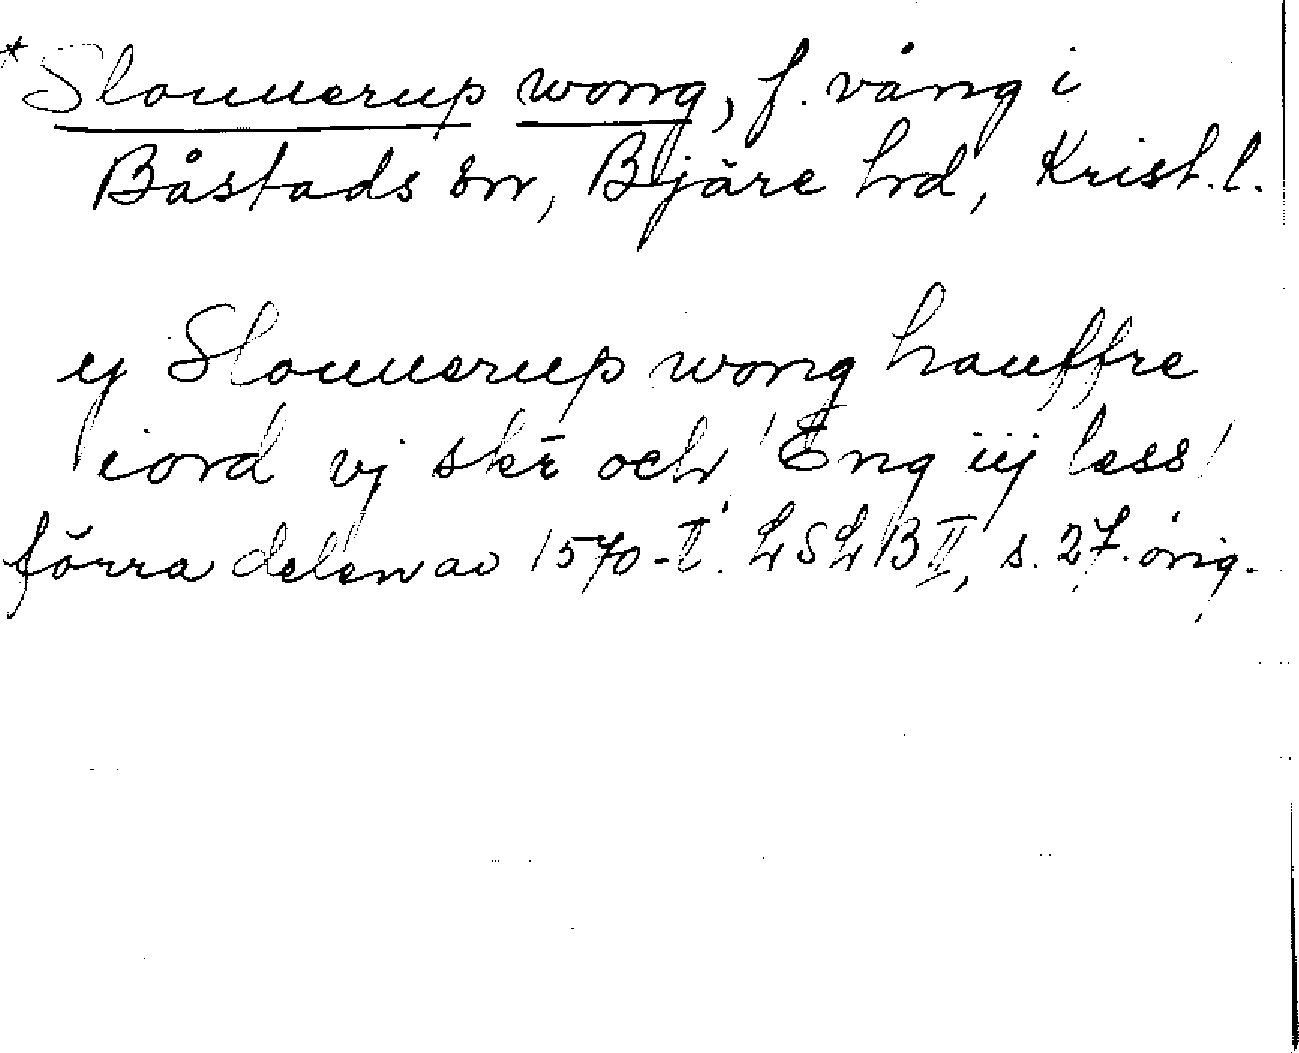 *Slouuerup wong, f. vång i
Båstads sn, Bjäre hd, Krist. l.
ij Slouuerup wong hauffre
iord vj skē och Eng iij less
förra delen av 1570-t. LSLB II, s. 27. orig.